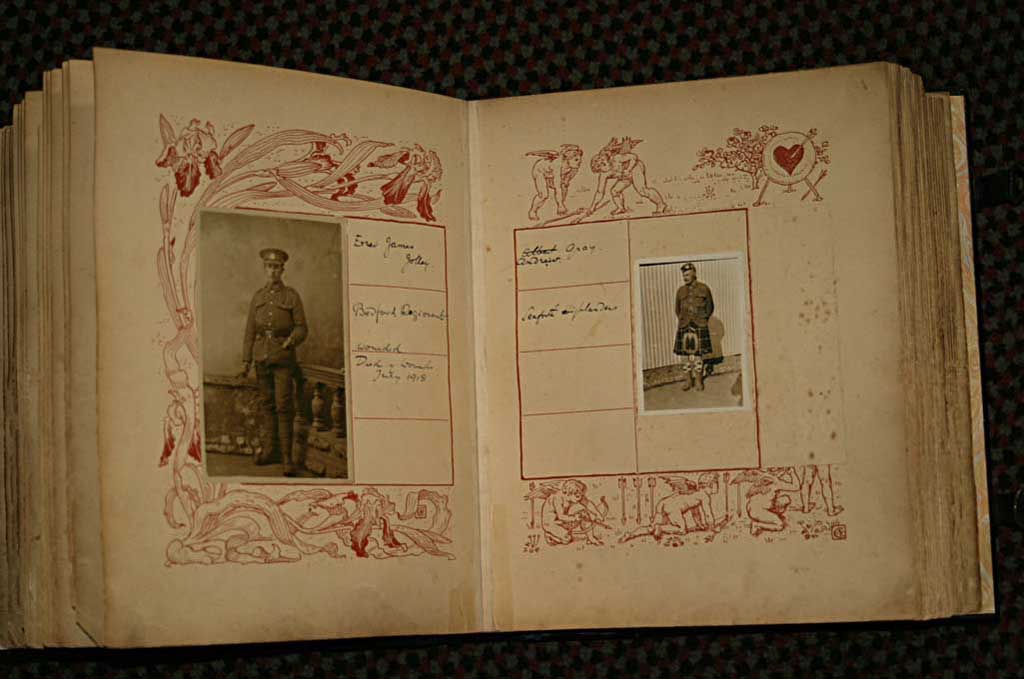 James
Jolley
Bedford Regiment
wounded
Died of wounds
July 1918
Gray.
Andrew.
Seaforth Highlanders